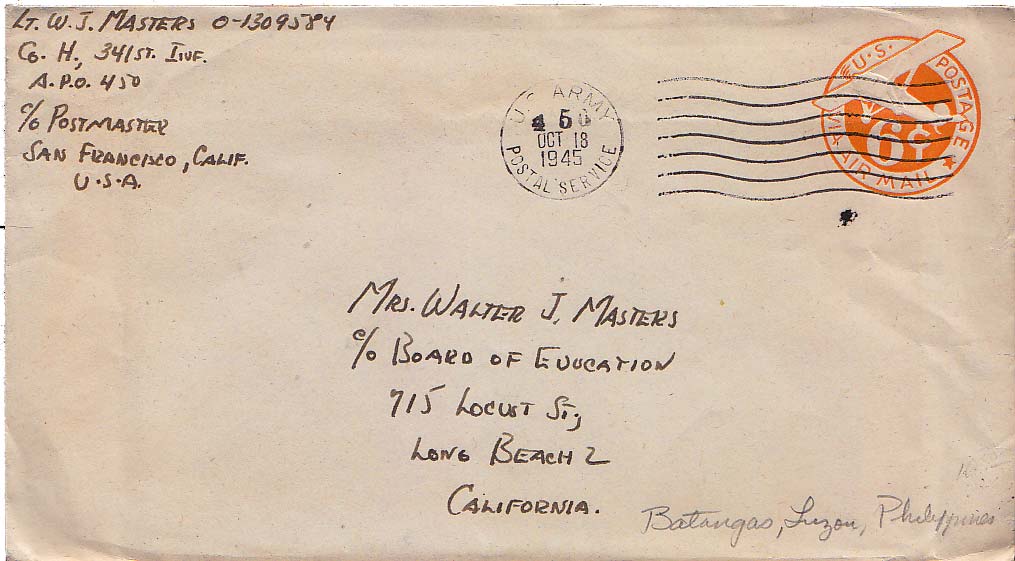 Lt. W. J. Masters O-1309584
Co. H., 341st. Inf.
A.P.O. 450
c/o Postmaster
San Francisco, Calif.
U.S.A.
U.S. ARMY
OCT 18
1945
POSTAL SERVICE
U.S. POSTAGE
VIA AIR MAIL
6¢
Mrs. Walter J. Masters
c/o Board of Education
715 Locust St.,
Long Beach 2
California.
Batangas, Luzon, Philippines